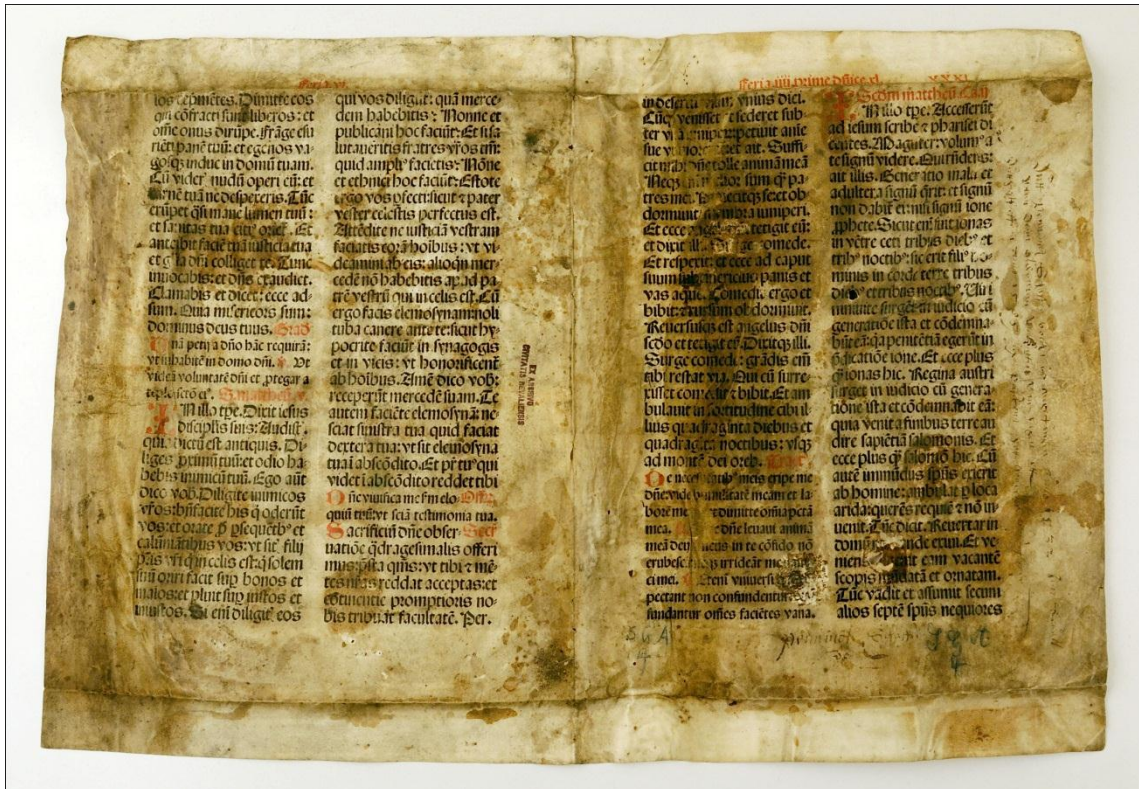 Feria vi.
qui cōfracti sunt liberos: et
riēti panē tuū: et egenos va-
gosq̄ induc in domū tuam.
Cū videris nudū operi eū: et
carnē tuā ne despexeris. Tūc
erūpet q̄si mane lumen tuū:
et sanitas tua citi⁹ oriet̄. Et
anteibit faciē tuā iusticia tua
et gl̄ia dn̄i colliget te. Tunc
inuocabis: et dn̄s exaudiet.
Clamabis et dicet: ecce ad-
sum. Quia misericors sum:
dominus deus tuus. Grad̄
Unā petij a dño hāc requirā:
vt inhabitē in domo dñi. Vt
videā voluntatē dñi et ꝓtegar a
IN illo tp̄e. Dixit iesus
discipulis suis: Audist̄.
quia dictū est antiquis. Di-
liges ꝓximū tuū: et odio ha-
bebis inimicū tuū. Ego aūt
dico vob̄. Diligite inimicos
vr̄os: bn̄facite his q̄ oderūt
vos: et orate ꝓ ꝑsequētib⁹ et
calūniātibus vos: vt sit̄ filij
pr̄is vr̄i qui in celis est: q̄ solem
suū oriri facit suꝑ bonos et
malos: et pluit suꝑ iustos et
iniustos. Si eni diligit̄ eos
qui vos diligūt: quā merce-
dem habebitis? Nonne et
publicani hoc faciūt? Et si sa-
lutaueritis fratres vr̄os tm̄:
quid ampli⁹ facietis? Nōne
et ethnici hoc faciūt? Estote
ergo vos ꝑfecti: sicut ⁊ pater
vester celestis perfectus est.
Attēdite ne iusticiā vestram
faciatis corā hoībus: vt vi-
deamini ab eis: alioq̄n mer-
cedē nō habebitis apud pa-
trē vestrū qui in celis est. Cū
ergo facis elemosynam: noli
tuba canere ante te: sicut hy-
pocrite faciūt in synagogis
et in vicis: vt honorificent
ab hoībus. Amē dico vob̄:
receperūt mercedē suam. Te
autem faciēte elemosynā: ne-
sciat sinistra tua quid faciat
dextera tua: vt sit elemosyna
tua ī abscōdito. Et pr̄ tu⁹ qui
videt ī abscōdito reddet tibi
Dn̄e viuifica me fm elo- Offer̄.
quiū tuū: vt sciā testimonia tua.
Sacrificiū dn̄e obser- Secr̄
uatiōe q̄dragesimalis offeri
mus: p̄sta q̄m̄s: vt tibi ⁊ mē-
tes nr̄as reddat acceptas: et
cōtinentie promptioris no-
bis tribuat facultatē. Per.
EX ARCHIVO
CIVITATIS
Feria iiii. prime dn̄ice xl. XXXI
in deserto viam vnius diei.
Cūq̄ venisset ⁊ sederet sub-
ter vnā petiuit anie
sue vt et ait. Suffi-
cit mihi dn̄e tolle animā meā
Neq̄ melior sum q̄ pa-
tres mei. Proiecitq̄ se: et ob-
dormiuit vmbra iuniperi.
Et ecce angelus tetigit eū:
et dixit illi. Surge comede.
Et respexit: et ecce ad caput
suum subcinericius panis et
vas aque. Comedit ergo et
bibit: ⁊ rursum obdormiut.
Reuersusq̄ est angelus dn̄i
scdo et tetigit eū. Dixitq̄ illi.
Surge comede: grādis em̄
tibi restat via. Qui cū surre-
xisset comedit ⁊ bibit. Et am
bulauit in fortitudine cibi il-
lius quadraginta diebus et
quadraginta noctibus: vsq̄
ad montē dei oreb. Tract̄
De necessitatib⁹ meis eripe me
dn̄e: vide humilitatē meam et la-
borē meū: ⁊ dimitte omnia pctā
mea. Ad te dn̄e leuaui animā
meā deus meus in te cōfido nō
erubescā: neq̄ irrideāt me
ci mei. Etenī vniuersi
pectant non confundentur:
fundantur oēs faciētes vana.
Scd̄m mattheū
IN illo tp̄e. Accesserūt
ad iesum scribe ⁊ pharisei di
centes. Magister: volum⁹ a
te signū videre. Qui r̄ndens:
ait illis. Generatio mala et
adultera signū q̄rit: et signū
non dabit̄ ei: nisi signū ione
ꝓphete. Sicut eni fuit ionas
in vētre ceti tribus dieb⁹ et
trib⁹ noctib⁹: sic erit fili⁹ ho-
minis in corde terre tribus
dieb⁹ et tribus noctib⁹. Viri
niniuite surgēt in iudicio cū
generatiōe ista et cōdemna-
būt eā: qa penitētiā egerūt in
p̄dicatiōe ione. Et ecce plus
q̄ ionas hic. Regina austri
surget in iudicio cū genera-
tiōne ista et cōdemnabit eā:
quia venit a finibus terre au
dire sapiētiā salomonis. Et
ecce plus q̄ salomō hic. Cū
autē immūdus spūs exierit
ab homine: ambulat ꝑ loca
arida: querēs requiē ⁊ nō in-
uenit. Tūc dicit. Reuertar in
domū meā vnde exiui. Et ve-
niens inuenit eam vacantē
scopis mūdatā et ornatam.
Tūc vadit et assumit secum
alios septē spūs nequiores